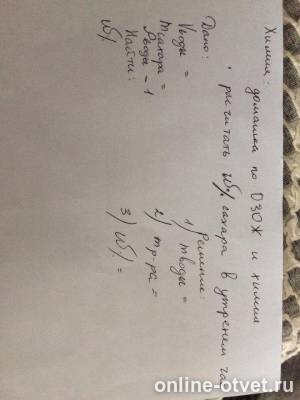 Химия: домашка по ОЗОЖ и химия
рисчитать ω% сахара в утренем ча
Дано:
Vводы =
mсахара =
ρводы - 1
Найти:
ω%
Решение:
1) mводы =
2) mр-ра =
3) ω% =
online-otvet.ru